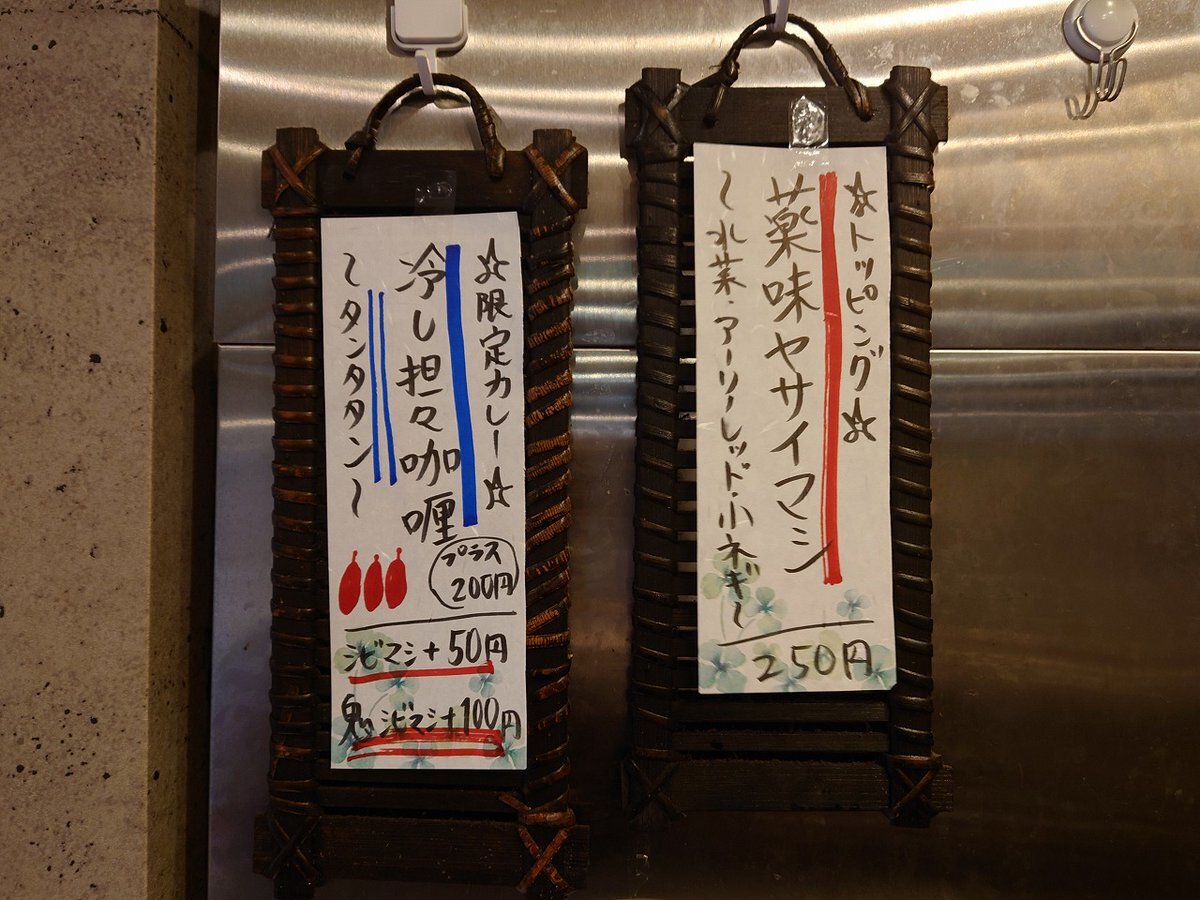 ☆限定カレー☆
冷し担々咖喱
〜タンタタン〜
プラス
200円
シビマシ+50円
鬼シビマシ+100円
☆トッピング☆
薬味ヤサイマシ
〜水菜・アーリーレッド・小ネギ〜
250円